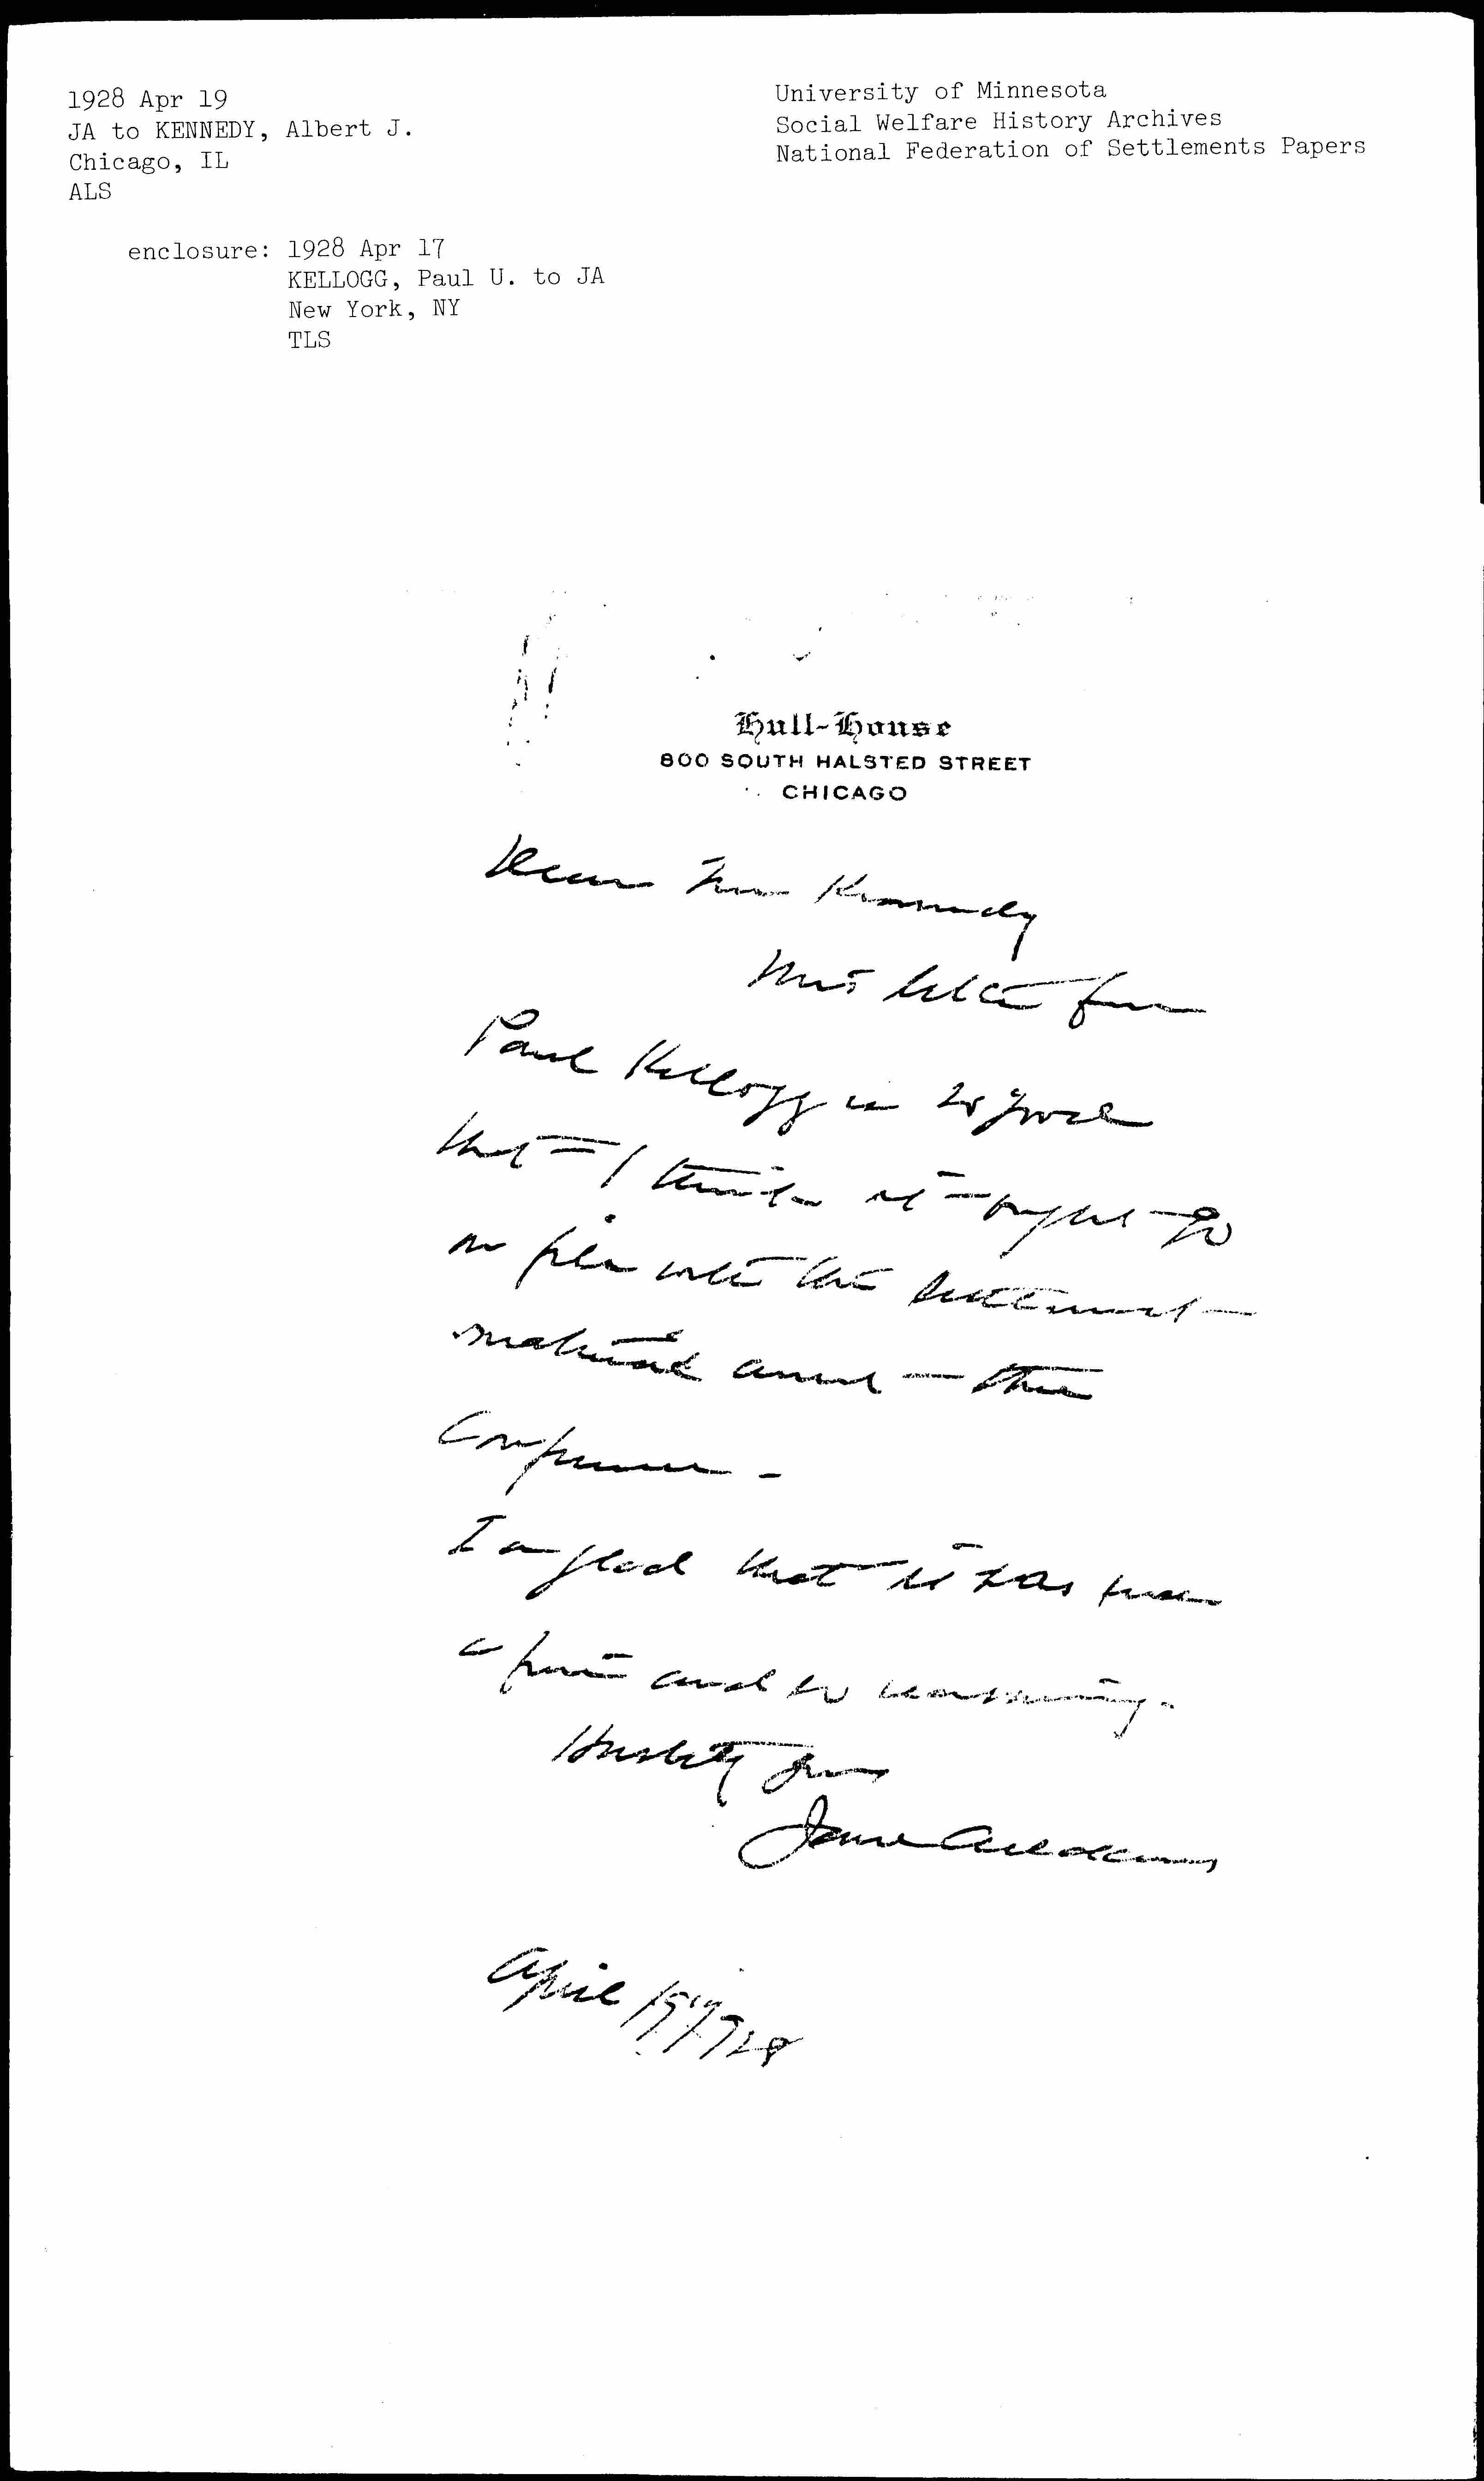 1928 Apr 19
JA to KENNEDY, Albert J.
Chicago, IL
ALS
enclosure: 1928 Apr 17
KELLOGG, Paul U. to JA
New York, NY
TLS
University of Minnesota
Social Welfare History Archives
National Federation of Settlements Papers
Hull-House
800 SOUTH HALSTED STREET
CHICAGO
Dear Mr Kennedy
This letter from
Paul Kellogg is so good
that I think it ought to
on file with the Settlement
material and the
Conference -
I am glad that it has
a and so
yours
Jane Addams
April 19" 1928